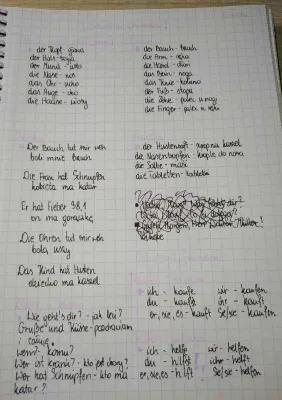 der Kopf - głowa
der Hals - szyja
der Mund - usta
die Nase - nos
das Ohr - ucho
das Auge - oko
die Haare - włosy
der Bauch - brzuch
der Arm - ręka
die Hand - dłoń
das Bein - noga
das Knie - kolano
der Fuß - stopa
die Zehe - palec u nogi
die Finger - palec u ręki
Der Bauch tut mir weh
boli mnie brzuch
Die Frau hat Schnupfen
kobieta ma katar
Er hat Fieber 38,1
on ma gorączkę
Die Ohren tut mir weh
bolą uszy
Das Kind hat Husten
dziecko ma kaszel
der Hustensaft - syrop na kaszel
die Nasentropfen - krople do nosa
die Salbe - maść
die Tabletten - tabletki
ich - kaufe wir - kaufen
du - kaufs ihr - kauft
er, sie, es - kauft Sie/sie - kaufen
Wie geht's dir? - jak leci?
Gruße und Küsse - pozdrawiam
i całuję
wem - komu?
Wer ist krank? - kto jest chory?
Wer hat Schnupfen - kto ma
katar?
ich - helfe wir - helfen
du - hilfs ihr - helft
er, sie, es - hilft Sie/sie - helfen